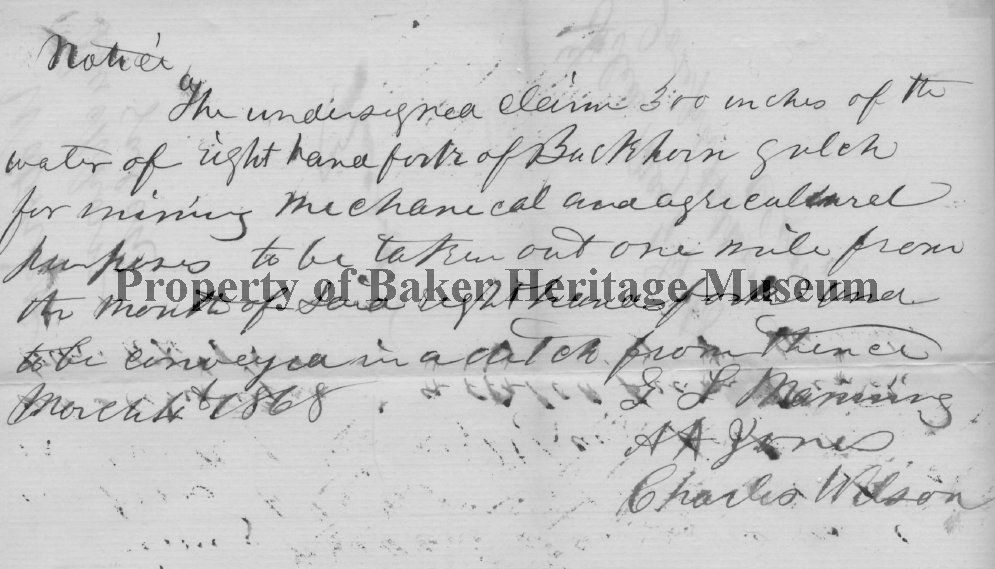 Notice
The undersigned claim 300 inches of the
water of right hand fork of Buckhorn gulch
for mining Mechanical and agricultural
purposes to be taken out one mile from
Property of Baker Heritage Museum
the mouth of Said right hand fork and
to be conveyed in a ditch from thence
March 1868
Manning
A A Jones
Charles Wilson